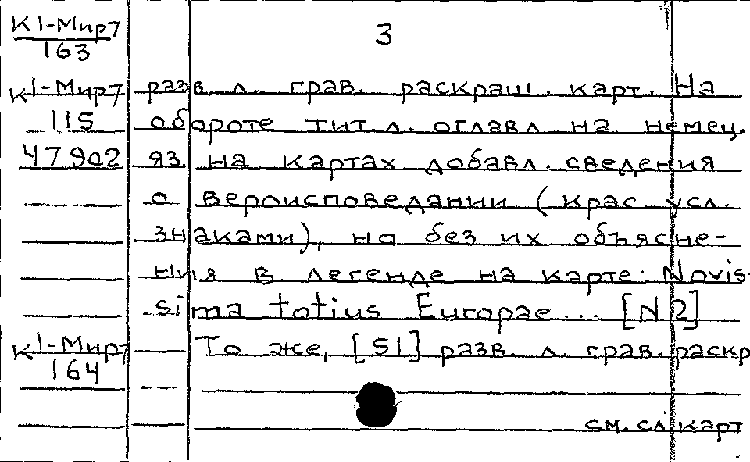 К1-Мир7
163
3
К1-Мир7 разв. л. грав. раскраш. карт. На
115 обороте тит. л. оглавл. на немец.
47902 яз. На картах добавл. сведения
о вероисповедании (крас. усл.
знаками), но без их объясне-
ния в легенде на карте: Novis-
sima totius Europae... [N 2]
К1-Мир7 То же, [51] разв. л. грав. раскр
164
см. сл. карт